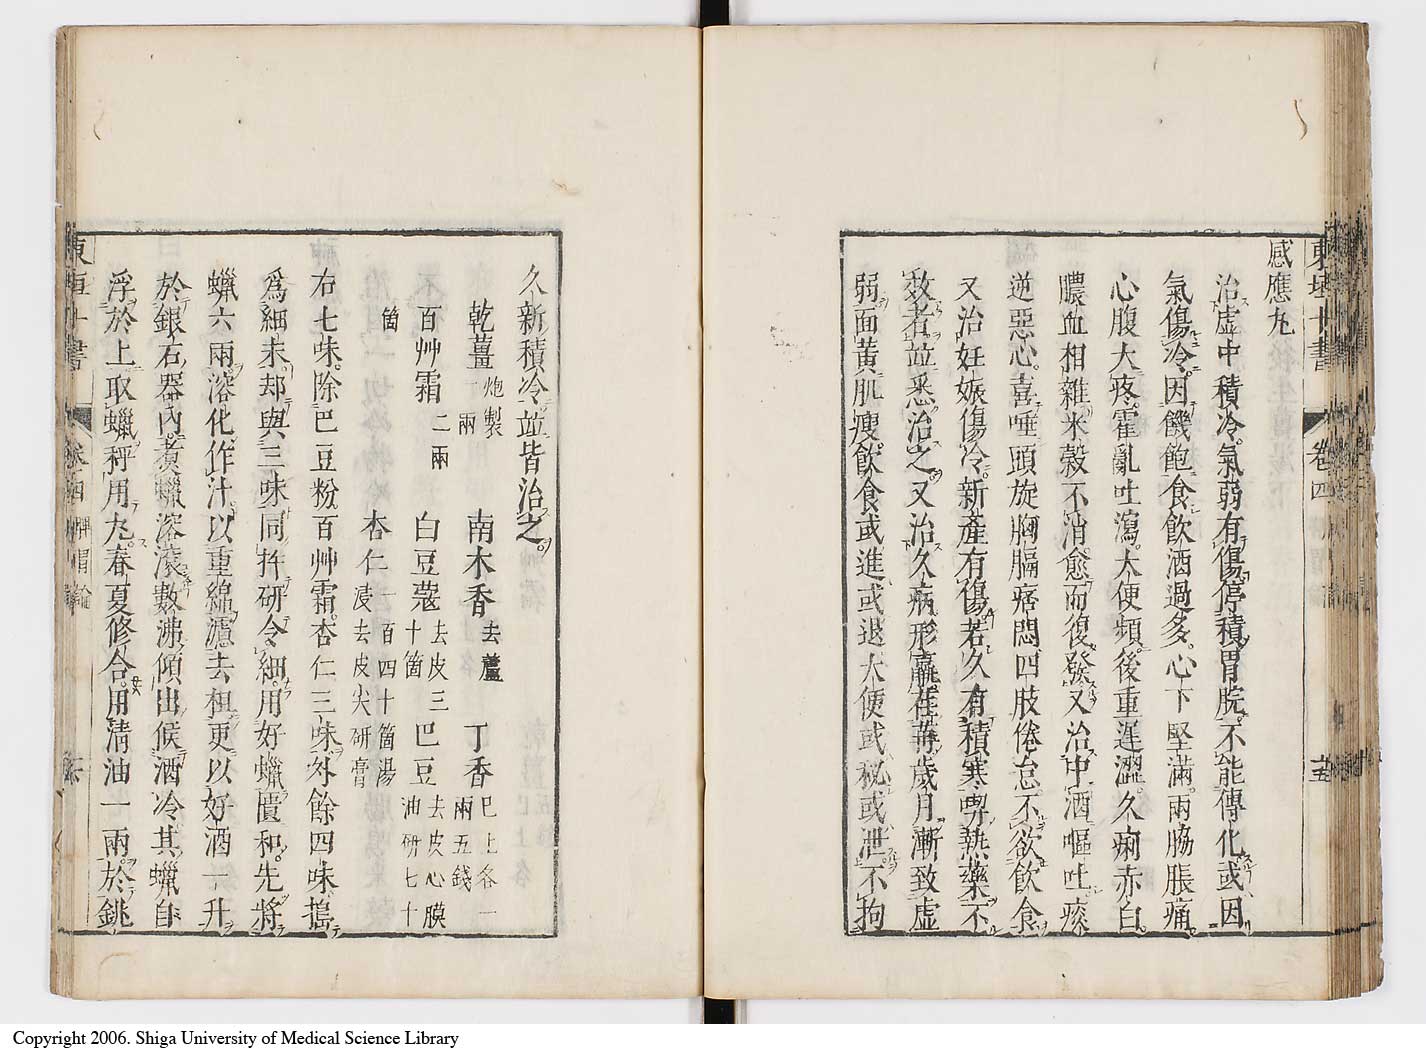 東垣十書 卷四
感應丸
治虛中積冷氣弱有傷停積胃脘不能傳化或因
氣傷冷因饑飽食飲酒過多心下堅滿兩脇脹痛
心腹大疼霍亂吐瀉大便頻後重遲澀久痢赤白
膿血相雜米穀不消愈而復發又治中酒嘔吐痰
逆惡心喜唾頭旋胸膈痞悶四肢倦怠不欲飲食
又治妊娠傷冷新產有傷若久有積寒喫熱藥不
效者並悉治之又治久病形羸荏苒歲月漸致虛
弱面黃肌瘦飲食或進或退大便或秘或泄不拘
久新積冷並皆治之
乾薑炮製一兩 南木香去蘆 丁香巳上各一兩五錢
百艸霜二兩 白豆蔻去皮三十箇 巴豆去皮心膜油研七十
箇 杏仁一百四十箇湯浸去皮尖研膏
右七味除巴豆粉百艸霜杏仁三味外餘四味搗
爲細末却與三味同拌研令細用好蠟匱和先將
蠟六兩溶化作汁以重綿濾去柤更以好酒一升
於銀石器內煮蠟溶滾數沸傾出候酒冷其蠟自
浮於上取蠟秤用丸春夏修合用清油一兩於銚
東垣十書
Copyright 2006. Shiga University of Medical Science Library